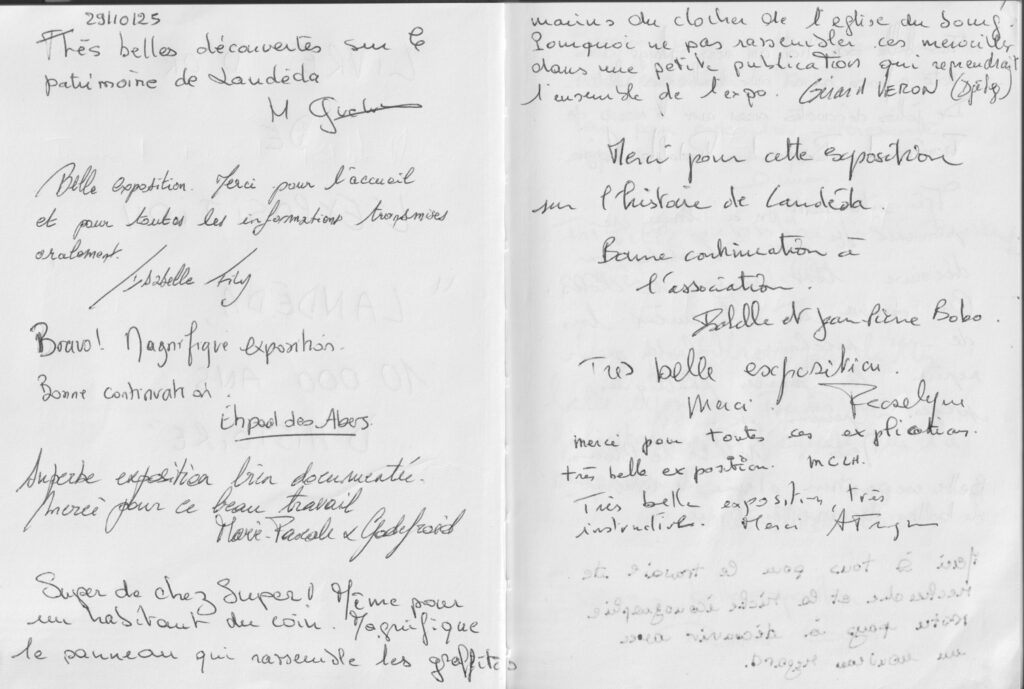 29/10/25
Très belles découvertes sur le
patrimoine de Landéda
M
Belle exposition. Merci pour l'accueil
et pour toutes les informations transmises
oralement.
Isabelle
Bravo! Magnifique exposition.
Bonne continuation.
Ehpad des Abers.
Superbe exposition bien documentée.
Merci pour ce beau travail
Marie-Pascale & Godefroid
Super de chez Super! Même pour
un habitant du coin. Magnifique
le panneau qui rassemble les graffitos
marins du clocher de l'église du bourg.
Pourquoi ne pas rassembler ces merveilles
dans une petite publication qui reprendrait
l'ensemble de l'expo. Gérard VERON
Merci pour cette exposition
sur l'histoire de Landéda.
Bonne continuation à
l'association.
et Jean Pierre Bobo.
Très belle exposition.
Merci. Roselyne
merci pour toutes ces explications.
très belle exposition. MCLH.
Très belle exposition, très
instructive. Merci
Merci à tous pour le travail de
recherche et la riche iconographie
notre pays à découvrir avec
un nouveau regard.